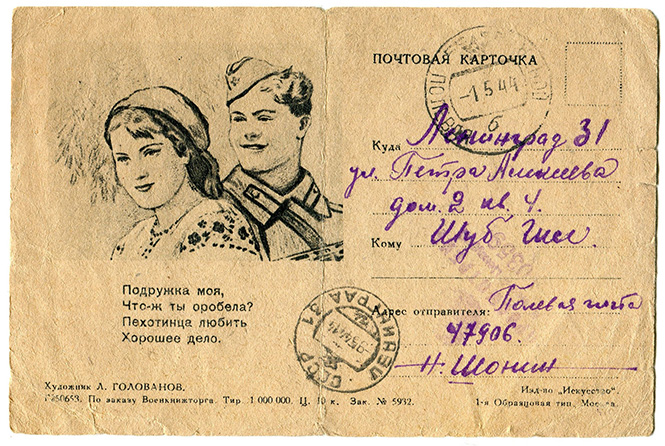 ПОЧТОВАЯ КАРТОЧКА
-1 5 44
б
Куда Ленинград 31
ул. Петра Алексеева
дом. 2 кв. 4.
Кому Шуб
Адрес отправителя: Полевая почта
47906.
Н. Шонин
Подружка моя,
Что-ж ты оробела?
Пехотинца любить
Хорошее дело.
ЛЕНИНГРАД 31
СССР
Художник Л. ГОЛОВАНОВ.
Изд-во „Искусство".
Г-50653. По заказу Военкнижторга. Тир. 1 000 000. Ц. 10 к. Зак. № 5932.
1-я Образцовая тип., Москва.